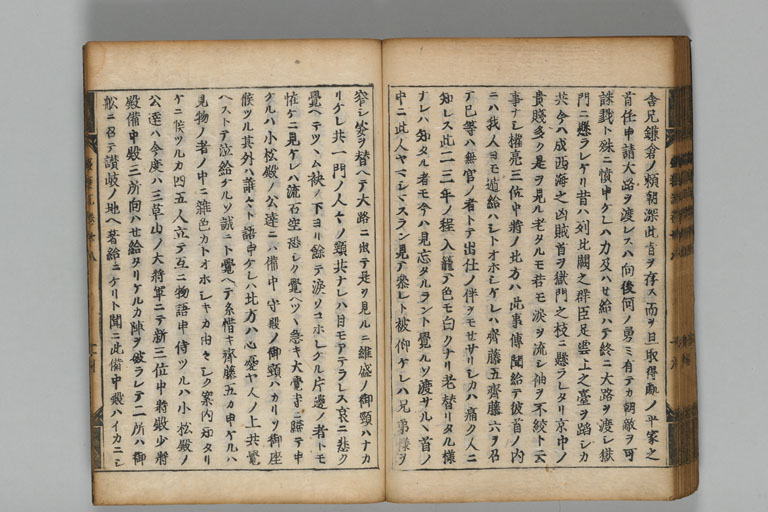 舎兄鎌倉ノ頼朝深此旨ヲ存ス而ヲ且取得処ノ平家之
首任申請大路ヲ渡レスハ向後何ノ勇ミ有テカ朝敵ヲ可
誅戮ト殊ニ憤申ケレハ力及ハせ給ハテ終ニ大路ヲ渡レ獄
門ニ懸ラレケリ昔ハ列北闕之群臣足雲上之臺ヲ蹈レカ
共今ハ成西海之凶賊首ヲ獄門之枝ニ懸ラレタリ京中ノ
貴賤多ク是ヲ見ル老タルモ若モ涙ヲ流シ袖ヲ不絞ト云
事ナシ權亮三位中将ノ北方ハ此事傳聞給テ彼首ノ内
ニハ我人ヨモ遁給ハレトオホレケレハ齊藤五齊藤六ヲ召
テ已等ハ無官ノ者トテ出仕ノ伴ヲモせサリレカハ痛ク人ニ
知レス此二三年ノ程入籠テ色モ白クナリ老替リタル様
ナレハ知タル者モ今ハ見忘タルラント覺ルソ渡サル丶首ノ
中ニ此人ヤマレマスラン見テ参レト被仰ケレハ兄弟様ヲ
窄シ姿ヲ替ヘテ大路ニ出テ是ヲ見ルニ維盛ノ御頸ハナカ
リケレ共一門ノ人々ノ頸共ナレハ目モアテラレス哀ニ悲ク
覺ヘテツ丶ム袂ノ下ヨリ餘テ涙ソコホレケル片邊ノ者トモ
怪ケニ見ケレハ流石空恐レク覺ヘツ丶急キ大覺寺ニ歸テ申
ケルハ小松殿ノ公達ニハ備中守殿ノ御頸ハカリソ御座
候ツル其外ハ誰々ト語申ケレハ北方ハ心憂ヤ人ノ上共覺
ヘストテ泣給ケルソ誠ニト覺ヘテ糸惜キ齊藤五カ申ケルハ
見物ノ者ノ中ニ雑色カトオホレキカ由々レク案内知タリ
ケニ候ツルカ四五人立テ互ニ物語申侍ツルハ小松殿ノ
公達ハ今度ハ三草山ノ大将軍ニテ新三位中將殿少將
殿備中殿三所向ハせ給タリケルカ陣ヲ破ラレテ二所ハ御
舩ニ召テ讃岐ノ地ヘ著給ニケリト聞ニ此備中殿ハイカニシ